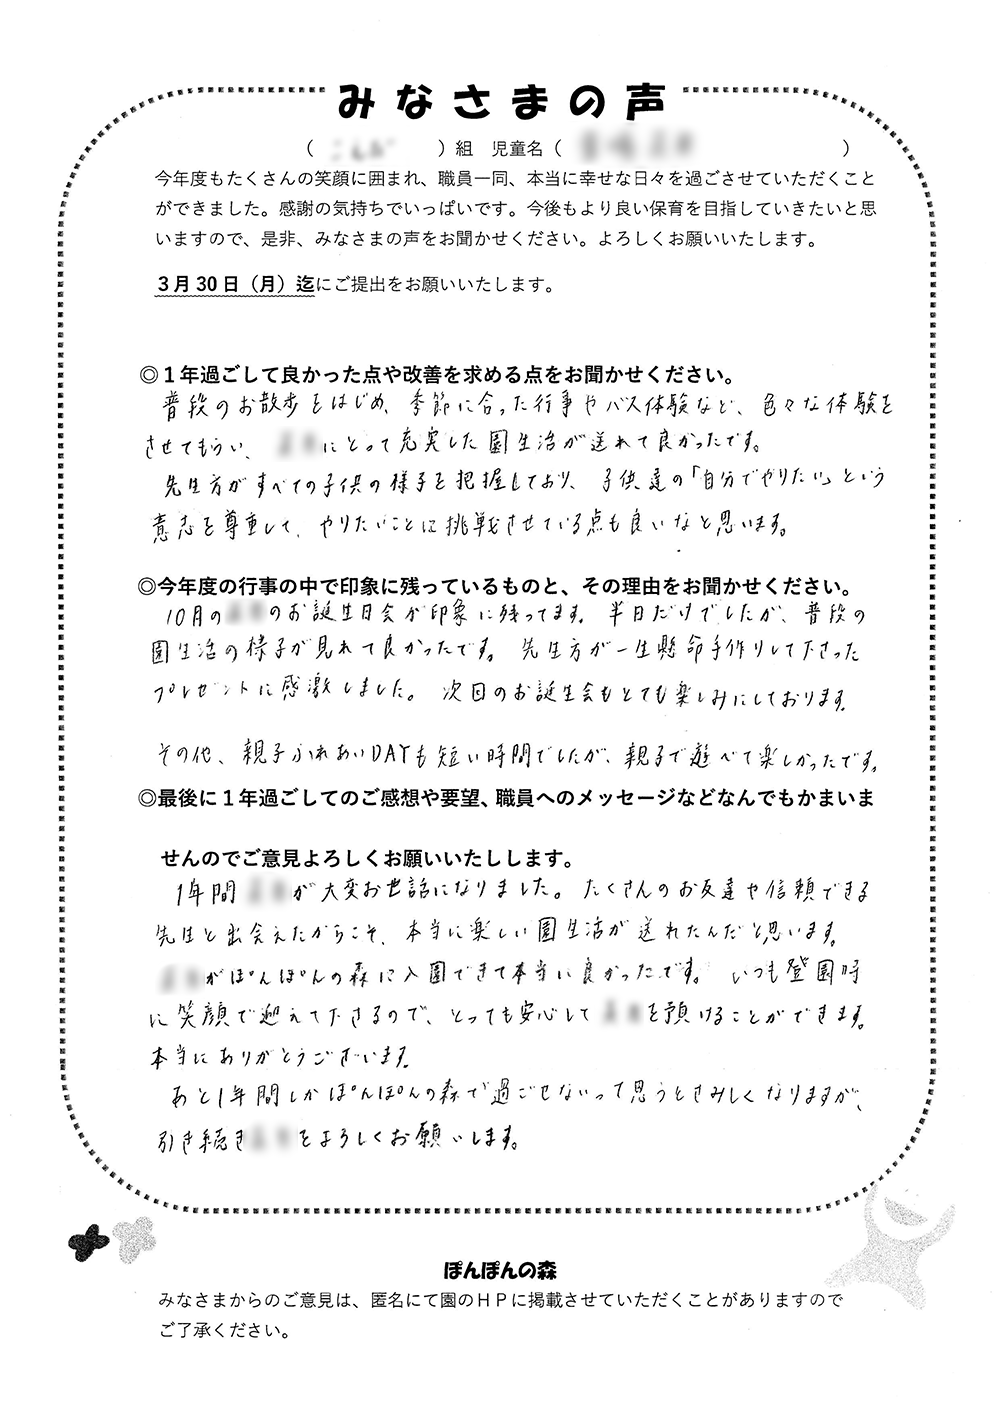 みなさまの声
（　　　）組　児童名（　　　）
今年度もたくさんの笑顔に囲まれ、職員一同、本当に幸せな日々を過ごさせていただくこと
ができました。感謝の気持ちでいっぱいです。今後もより良い保育を目指していきたいと思
いますので、是非、みなさまの声をお聞かせください。よろしくお願いいたします。
３月30日（月）迄にご提出をお願いいたします。
◎１年過ごして良かった点や改善を求める点をお聞かせください。
普段のお散歩をはじめ、季節に合った行事やバス体験など、色々な体験を
させてもらい、にとって充実した園生活が送れて良かったです。
先生方がすべての子供の様子を把握しており、子供達の「自分でやりたい」という
意志を尊重して、やりたいことに挑戦させている点も良いなと思います。
◎今年度の行事の中で印象に残っているものと、その理由をお聞かせください。
10月ののお誕生日会が印象に残ってます。半日だけでしたが、普段の
園生活の様子が見れて良かったです。先生方が一生懸命手作りして下さった
プレゼントに感激しました。次回のお誕生会もとても楽しみにしております。
その他、親子ふれあいDAYも短い時間でしたが、親子で遊べて楽しかったです。
◎最後に１年過ごしてのご感想や要望、職員へのメッセージなどなんでもかまいま
せんのでご意見よろしくお願いいたしします。
1年間が大変お世話になりました。たくさんのお友達や信頼できる
先生と出会えたからこそ、本当に楽しい園生活が送れたんだと思います。
がぽんぽんの森に入園できて本当に良かったです。いつも登園時
に笑顔で迎えて下さるので、とっても安心してを預けることができます。
本当にありがとうございます。
あと1年間しかぽんぽんの森で過ごせないって思うとさみしくなりますが、
引き続きをよろしくお願いします。
ぽんぽんの森
みなさまからのご意見は、匿名にて園のＨＰに掲載させていただくことがありますので
ご了承ください。